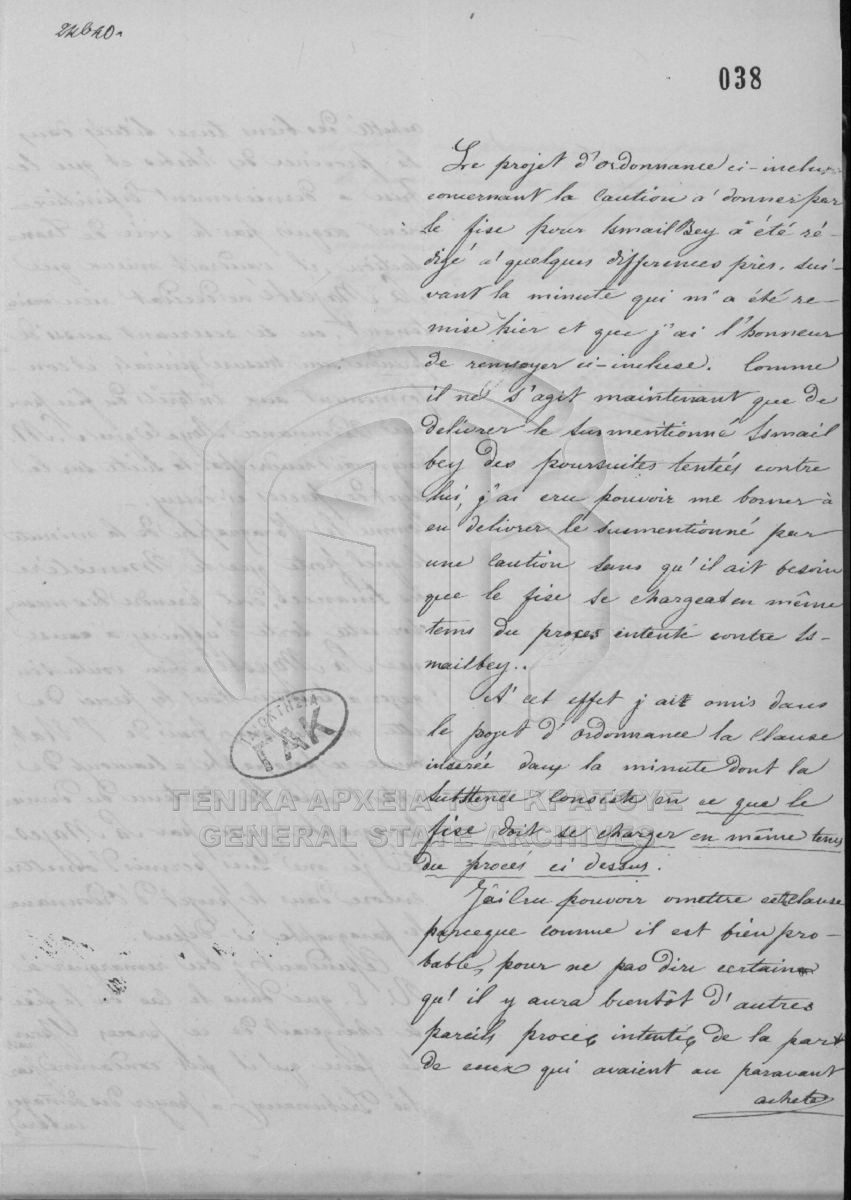 24640.
038
Le projet d'Ordonnance ci-inclus
concernant la caution à donner par
le fisc pour Ismail Bey a été ré-
digé a' quelques differences près, sui-
vant la minute qui m'a été re-
mise hier et que j'ai l'honneur
de renvoyer ci-incluse. Comme
il ne s'agit maintenant que de
delivrer le susmentionné Ismail
bey des poursuites tentées contre
lui, j'ai cru pouvoir me borner à
en delivrer le susmentionné par
une caution sans qu'il ait besoin
que le fisc se chargeat en même
tems du procès intenté contre Is-
mailbey..
A' cet effet j'ai omis dans
le projet d'Ordonnance la clause
inserée dans la minute dont la
substence consiste en ce que le
fisc doit se charger en même tems
du procés ci dessus.
J'ai cru pouvoir omettre cette clause
parceque comme il est bien pro-
bable, pour ne pas dire certain
qu'il y aura bientôt d'autres
pareils procès intentés de la part
de ceux qui avaient au paravant
acheté
ΙΔΙΟΚΤΗΣΙΑ
ΓΑΚ
ΓΕΝΙΚΑ ΑΡΧΕΙΑ ΤΟΥ ΚΡΑΤΟΥΣ
GENERAL STATE ARCHIVES